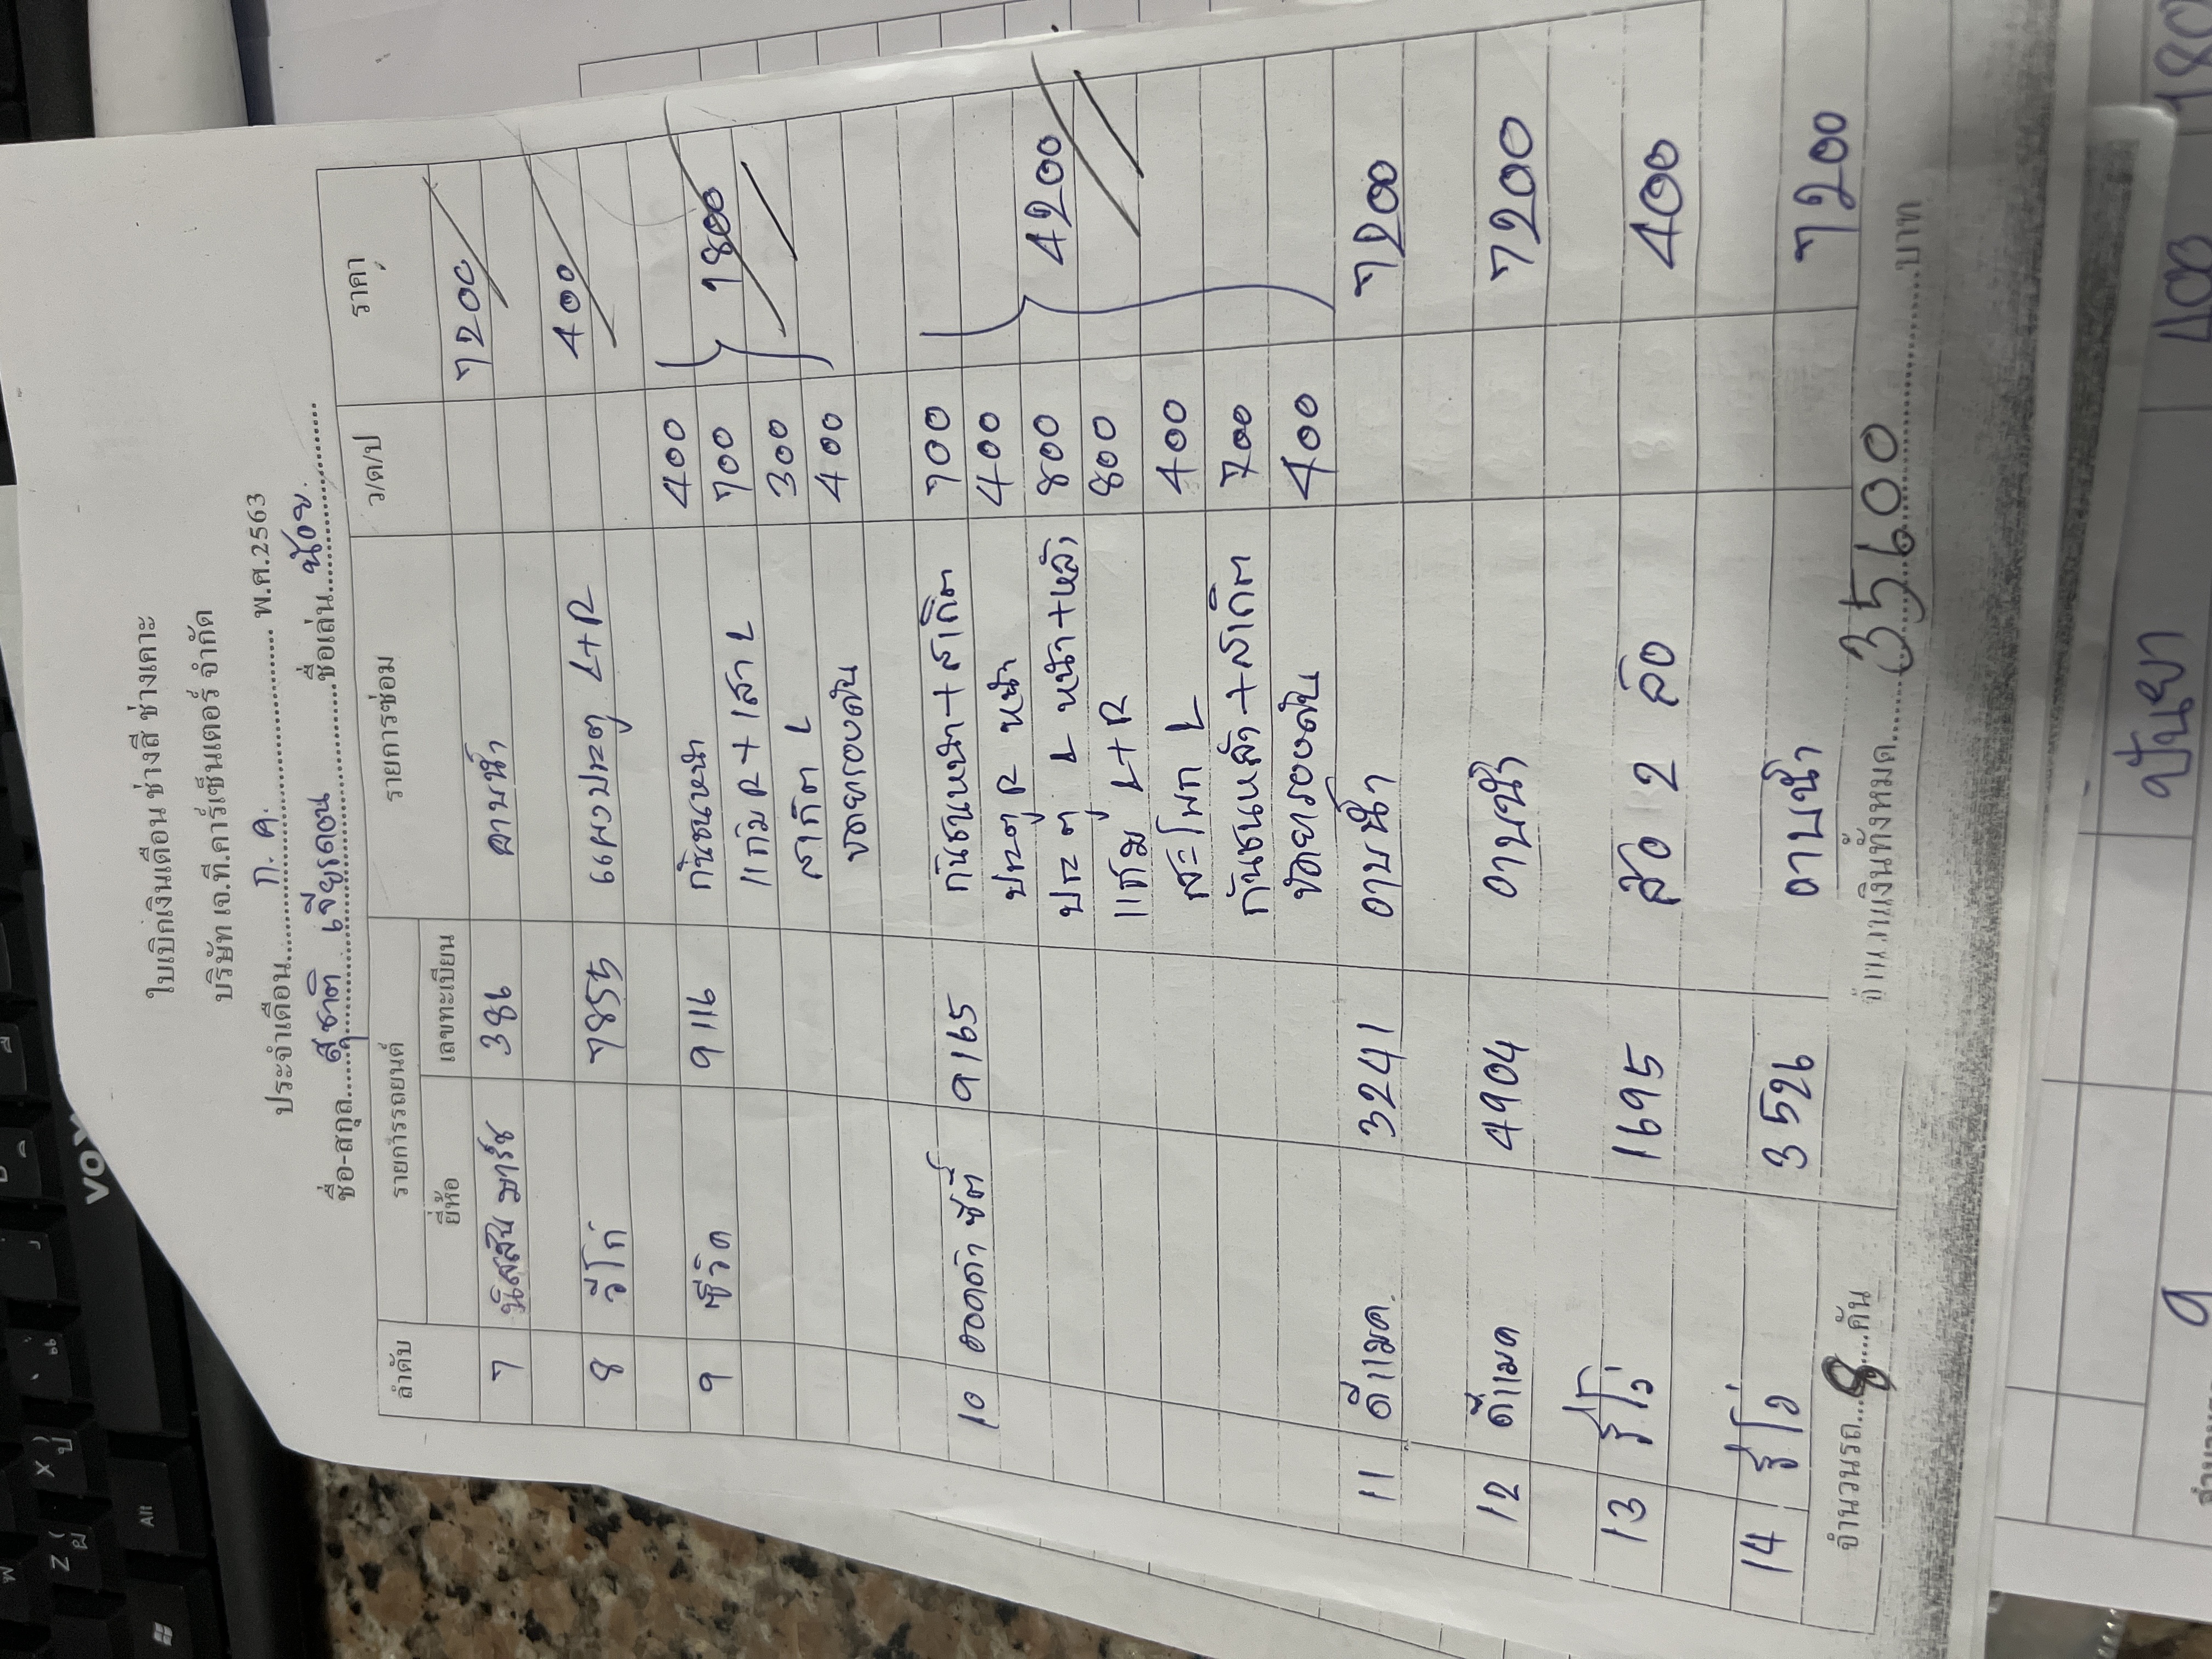 ใบเบิกเงินเดือน ช่างสี ช่างเคาะ
บริษัท เจ.ที.คาร์เซ็นเตอร์ จำกัด
ประจำเดือน ก.ค. พ.ศ.2563
ชื่อ-สกุล สุชาติ เจียรดอน ชื่อเล่น น้อย
ลำดับ รายการรถยนต์ รายการซ่อม ว/ด/ป ราคา
ยี่ห้อ เลขทะเบียน
7 นิสสัน มาร์ช 386 อาบน้ำ 7200
8 วีโก่ 7855 แผงประตู L+R 400
9 ซีวิค 9116 กันชนหน้า 400
แก้ม R + เสา L 700 1800
สเกิต L 300
ขัดยารอบคัน 400
10 ฮอดด้า ซิตี้ 9165 กันชนหน้า+สเกิต 700
ประตู R หน้า 400
ประตู L หน้า+หลัง 800 4200
แก้ม L+R 800
สะโพก L 400
กันชนหลัง+สเกิต 700
ขัดยารอบคัน 400
11 ดีแมค 3241 อาบน้ำ 7200
12 ดีแมค 4904 อาบน้ำ 7200
13 รีโว่ 1695 ล้อ 2 ล้อ 400
14 รีโว่ 3526 อาบน้ำ 7200
จำนวนรถ 8 คัน จำนวนเงินทั้งหมด 35600 บาท
ปันยา 400 1800
9